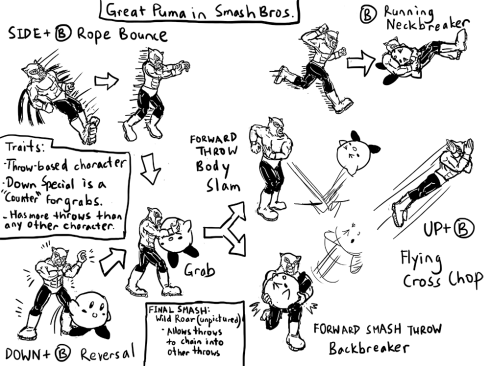 Great Puma in Smash Bros.
SIDE + B Rope Bounce
B Running
Neckbreaker
Traits:
- Throw-based character
- Down Special is a
"Counter" for grabs.
- Has more throws than
any other character.
FORWARD
THROW
Body
Slam
UP + B
Flying
Cross Chop
Grab
DOWN + B Reversal
FINAL SMASH:
Wild Roar (unpictured)
- Allows throws
to chain into
other throws
FORWARD SMASH THROW
Backbreaker